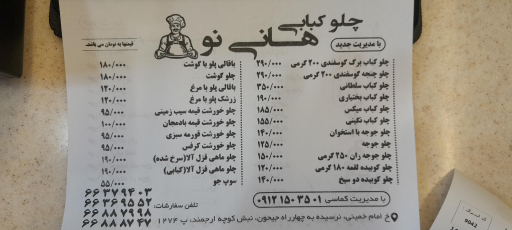 چلو کبابی
هانی نو
با مدیریت جدید
قیمتها به تومان می باشد.
چلو کباب برگ گوسفندی ۲۰۰ گرمی ۲۹۰/۰۰۰
چلو چنجه گوسفندی ۲۰۰ گرمی ۲۹۰/۰۰۰
چلو کباب سلطانی ۳۵۰/۰۰۰
چلو کباب بختیاری ۱۹۰/۰۰۰
چلو کباب میکس ۱۸۵/۰۰۰
چلو کباب نگینی ۱۵۵/۰۰۰
چلو جوجه با استخوان ۱۴۰/۰۰۰
چلو جوجه ۱۲۵/۰۰۰
چلو جوجه ران ۲۵۰ گرمی ۱۵۰/۰۰۰
چلو کوبیده لقمه ۱۸۰ گرمی ۱۲۰/۰۰۰
چلو کوبیده دو سیخ ۱۴۰/۰۰۰
باقالی پلو با گوشت ۱۸۰/۰۰۰
چلو گوشت ۱۸۰/۰۰۰
باقالی پلو با مرغ ۱۲۰/۰۰۰
زرشک پلو با مرغ ۱۲۰/۰۰۰
چلو خورشت قیمه سیب زمینی ۹۵/۰۰۰
چلو خورشت قیمه بادمجان ۱۰۰/۰۰۰
چلو خورشت قورمه سبزی ۹۵/۰۰۰
چلو خورشت کرفس ۹۵/۰۰۰
چلو ماهی قزل آلا(سرخ شده) ۱۹۰/۰۰۰
چلو ماهی قزل آلا(کبابی) ۱۹۰/۰۰۰
سوپ جو ۵۵/۰۰۰
با مدیریت کماسی ۰۹۱۲۱۵۰۳۵۰۱
تلفن سفارشات:
۶۶۳۷۹۴۰۳
۶۶۳۶۹۵۵۲
۶۶۸۸۷۹۹۸
۶۶۸۸۸۷۴۷
خ امام خمینی، نرسیده به چهارراه جیحون، نبش کوچه ارجمند، پ ۱۲۷۴